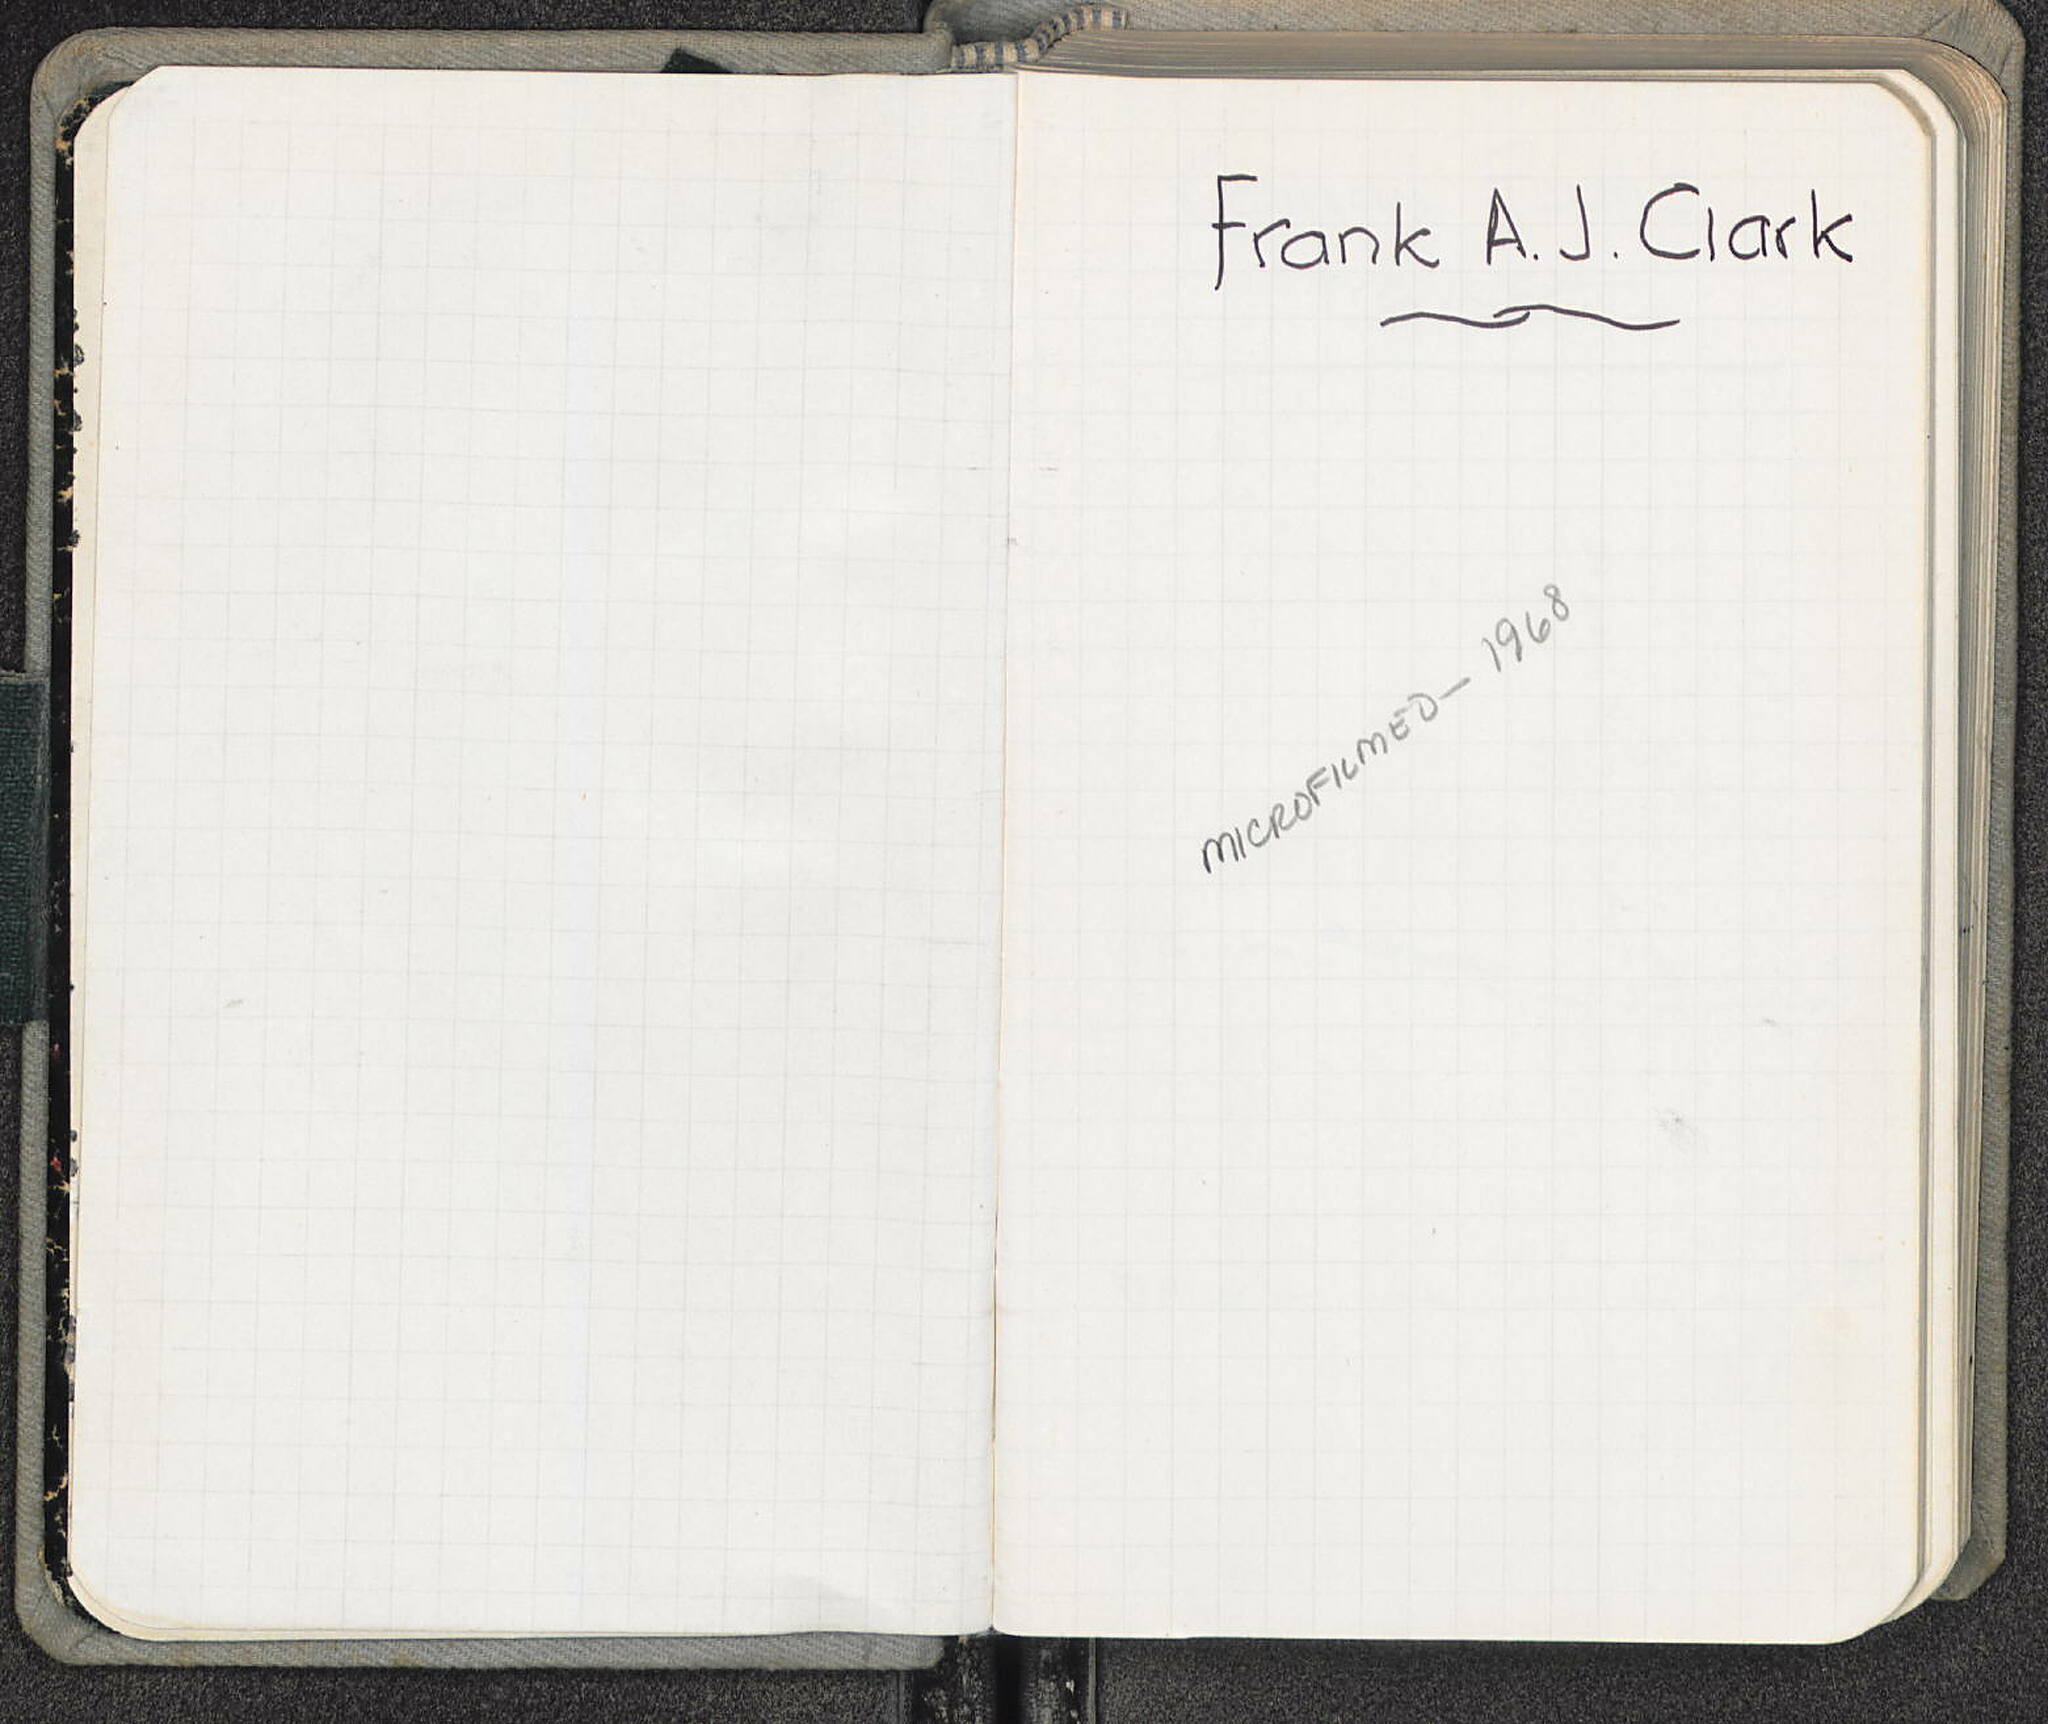 Frank A. J. Clark
MICROFILMED - 1968